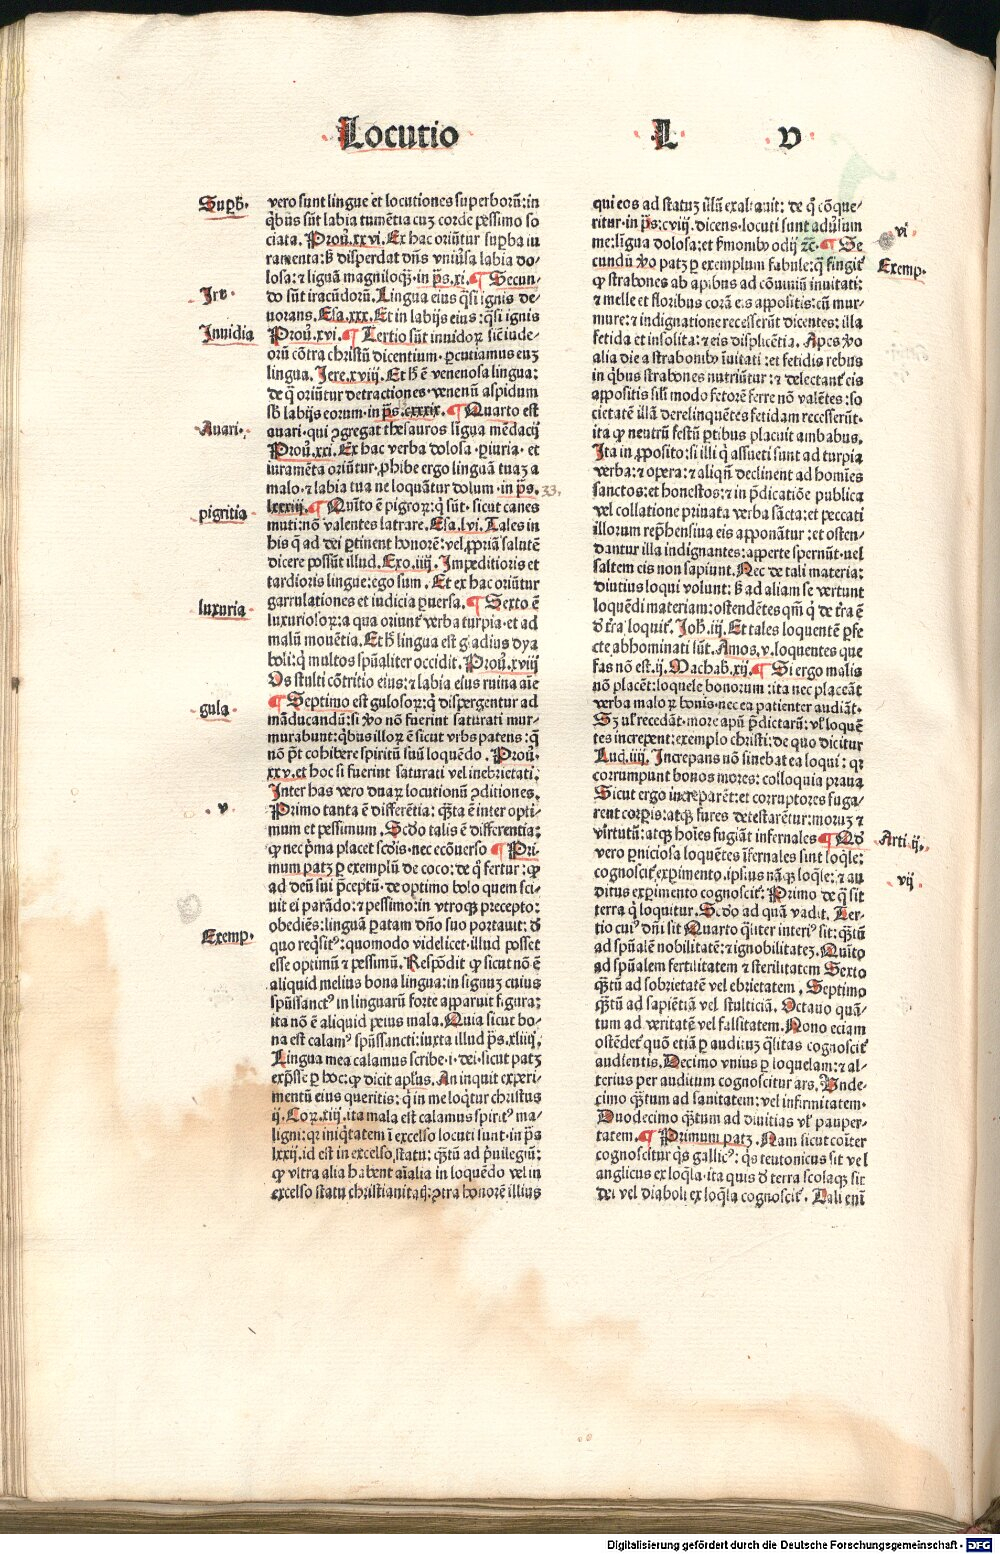 Locutio L V
Supb̄.
vero sunt lingue et locutiones superborū: in
q̄bus sūt labia tumētia cuz corde pessimo so
ciata. Prou̅. xxvi. Ex hac oriūtur supba iu
ramenta: ƀ disperdat dn̄s vniu̅sa labia do-
losa: ⁊ liguā magniloq̄ꝫ. in p̄s. xi. ¶ Secun-
Ire.
do sūt iracūdorū. Lingua eius q̄si ignis de-
uorans. Esa. xxx. Et in labijs eius: q̄si ignis
Inuidia
Prou̅. xvi. ¶ Tertio sūt inuidoꝝ sic̄ iude-
orū cōtra christū dicentium. ꝑcutiamus euꝫ
lingua. Jere. xviij. Et h̄ ē venenosa lingua:
de q̄ oriūtur detractiones. venenū aspidum
sƀ labijs eorum. in p̄s. cxxxix. ¶ Quarto est
Auari.
auari. qui ꝯgregat thesauros līgua mēdacij
Prou̅. xxi. Ex hac verba dolosa. ꝑiuria. et
iuramēta oriūtur. ꝓhibe ergo linguā tuaꝫ a
malo. ⁊ labia tua ne loquātur dolum. in p̄s. 33.
lxxxiij. ¶ Quīto ē pigroꝝ: q̄ sūt. sicut canes
pigritia
muti: nō valentes latrare. Esa. lvi. Tales in
his q̄ ad dei ꝑtinent honorē: vel ꝓpriā salutē
dicere possūt illud. Exo. iiij. Impeditioris et
tardioris lingue: ego sum. Et ex hac oriūtur
garrulationes et iudicia ꝑuersa. ¶ Sexto ē
luxuria
luxuriosoꝝ: a qua oriunt̄ verba turpia. et ad
malū mouētia. Et h̄ lingua est gladius dya
boli: q̄ multos spūaliter occidit. Prou̅. xviij
Os stulti cōtritio eius: ⁊ labia eius ruina aīe
¶ Septimo est gulosoꝝ: q̄ dispergentur ad
gula
māducandū: si v̊o nō fuerint saturati mur-
murabunt: q̄bus illoꝝ ē sicut vrbs patens: q̄
nō p̄t cohibere spiritū suū loquēdo. Prou̅.
xxv. et hoc si fuerint saturati vel inebrietati.
Inter has vero duaꝝ locutionū ꝯditiones.
v
Primo tanta ē differētia: q̄ꝫta ē inter opti-
mum et pessimum. Scd̄o talis ē differentia:
ꝙ nec p̄ma placet scd̄is. nec ecōuerso ¶ Pri
mum patꝫ ꝑ exemplū de coco: de q̄ fertur: ꝙ
ad deū sui p̄ceptū. de optimo bolo quem sci-
uit ei parādo: ⁊ pessimo: in vtroqꝫ precepto:
obediēs: linguā ꝑatam dn̄o suo portauit: d̄
Exemp.
quo req̄sitꝰ: quomodo videlicet. illud posset
esse optimū ⁊ pessimū. Respōdit ꝙ sicut nō ē
aliquid melius bona lingua: in signuꝫ cuius
spūssanctꝰ in linguarū forte apparuit figura:
ita nō ē aliquid peius mala. Quia sicut bo-
na est calamꝰ spūssancti: iuxta illud p̄s. xliiij.
Lingua mea calamus scribe. i. dei. sicut patꝫ
exp̄sse ꝑ hoc: ꝙ dicit apl̄us. An inquit experi-
mentū eius queritis: q̄ in me loq̄tur christus
ij. Coꝝ. xiij. ita mala est calamus spiritꝰ ma-
ligni: qꝛ iniq̄tatem ī excelso locuti sunt. in p̄s
lxxij. id est in excelso statu: q̄ꝫtū ad p̄uilegiū:
ꝙ vltra alia habent aīalia in loquēdo vel in
excelso statu christianitaꝭ: ꝯtra honorē illius
qui eos ad statuꝫ illū exaltauit: de q̄ cōque-
ritur. in p̄s: cviij. dicens. locuti sunt adu̅sum
vi
me: līgua dolosa: et ẜmonibꝰ odij ⁊c̄. ¶ Se
Exemp.
cundū v̊o patꝫ ꝑ exemplum fabule: q̄ fingit̄
ꝙ strabones ab apibus ad cōuiuiū inuitati:
⁊ melle et floribus corā eis appositis: cū mur-
mure: ⁊ indignatione recesserūt dicentes: illa
fetida et insolita: ⁊ eis displicētia. Apes v̊o
alia die a strabonibꝰ īuitati: et fetidis rebus
in q̄bus strabones nutriūtur: ⁊ delectant̄ eis
appositis sil̄i modo fetorē ferre nō valētes: so
cietatē illā derelinquētes fetidam recesserūt.
ita ꝙ neutrū festū ꝑtibus placuit ambabus.
Ita in ꝓposito: si illi q̄ assueti sunt ad turpia
verba: ⁊ opera: ⁊ aliqn̄ declinent ad homīes
sanctos: et honestos: ⁊ in p̄dicatiōe publica
vel collatione priuata verba sācta: et peccati
illorum rep̄hensiua eis apponātur: et osten-
dantur illa indignantes: apperte spernūt. uel
saltem eis non sapiunt. Nec de tali materia:
diutius loqui volunt: ƀ ad aliam se vertunt
loquēdi materiam: ostendētes qm̄ q̄ de tr̄a ē
d̄ tr̄a loquit̄. Joh̄. iij. Et tales loquentē ꝑfe
cte abhominati sūt. Amos. v. loquentes que
fas nō est. ij. Machab̄. xij. ¶ Si ergo malis
nō placēt: loquele bonorum: ita nec placeāt
verba maloꝝ bonis. nec ea patienter audiāt.
Sꝫ vl̄ recedāt. more apū p̄dictarū: vl̄ loquē
tes increpent: exemplo christi: de quo dicitur
Luc̄. iiij. Increpans nō sinebat ea loqui: qꝛ
corrumpunt bonos mores: colloquia praua
Sicut ergo increparēt: et corruptores fuga-
rent corꝑis: atqꝫ fures detestarētur: moruꝫ ⁊
vi̅rtutū: atqꝫ hoīes fugiāt infernales ¶ Ad
Arti. ij.
vero ꝑniciosa loquētes īfernales sint loq̄le:
cognoscit̄ exꝑimento. ipsius nāqꝫ loq̄le: ⁊ au
vij
ditus exꝑimento cognoscit̄: Primo de q̄ sit
terra q̄ loquitur. Scd̄o ad quā vadit. Ter-
tio cuiꝰ dn̄i sit Quarto q̄liter interiꝰ sit: q̄ꝫtū
ad spūalē nobilitatē: ⁊ ignobilitateꝫ. Quīto
ad spūalem fertilitatem ⁊ sterilitatem Sexto
q̄ꝫtū ad sobrietatē vel ebrietatem. Septimo
q̄ꝫtū ad sapiētiā vel stulticiā. Octauo quā-
tum ad veritatē vel falsitatem. Nono eciam
ostēdet̄ quō etiā ꝑ audituꝫ q̄litas cognoscit̄
audientis. Decimo vnius ꝑ loquelam: ⁊ al-
terius per auditum cognoscitur ars. Vnde-
cimo q̄ꝫtum ad sanitatem: vel infirmitatem.
Duodecimo q̄ꝫtum ad diuitias vl̄ pauper-
tatem. ¶ Primum patꝫ. Nam sicut cōiter
cognoscitur q̄s gallicꝰ: q̄s teutonicus sit vel
anglicus ex loq̄la. ita quis d̄ terra scolaqꝫ sit
dei vel diaboli ex loq̄la cognoscit̄. Tali eni̅
Digitalisierung gefördert durch die Deutsche Forschungsgemeinschaft - DFG